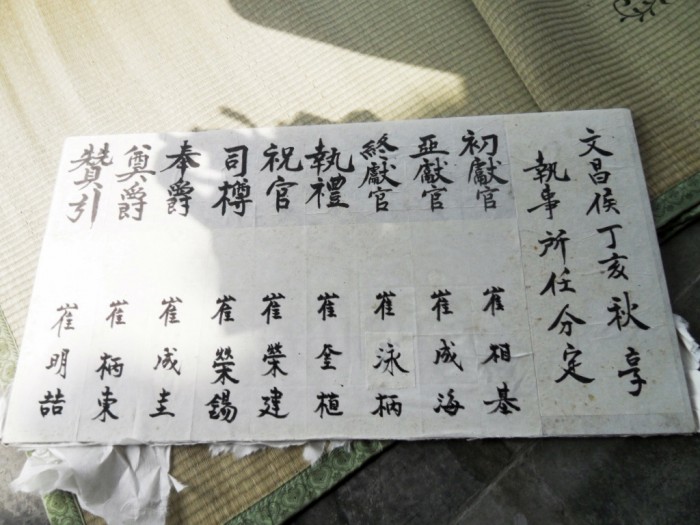 文昌侯丁亥秋享
執事所任分定
初獻官 崔相基
亞獻官 崔成海
終獻官 崔泳柄
執禮 崔奎植
祝官 崔榮建
司樽 崔榮錫
奉爵 崔成圭
奠爵 崔柄東
贊引 崔明喆